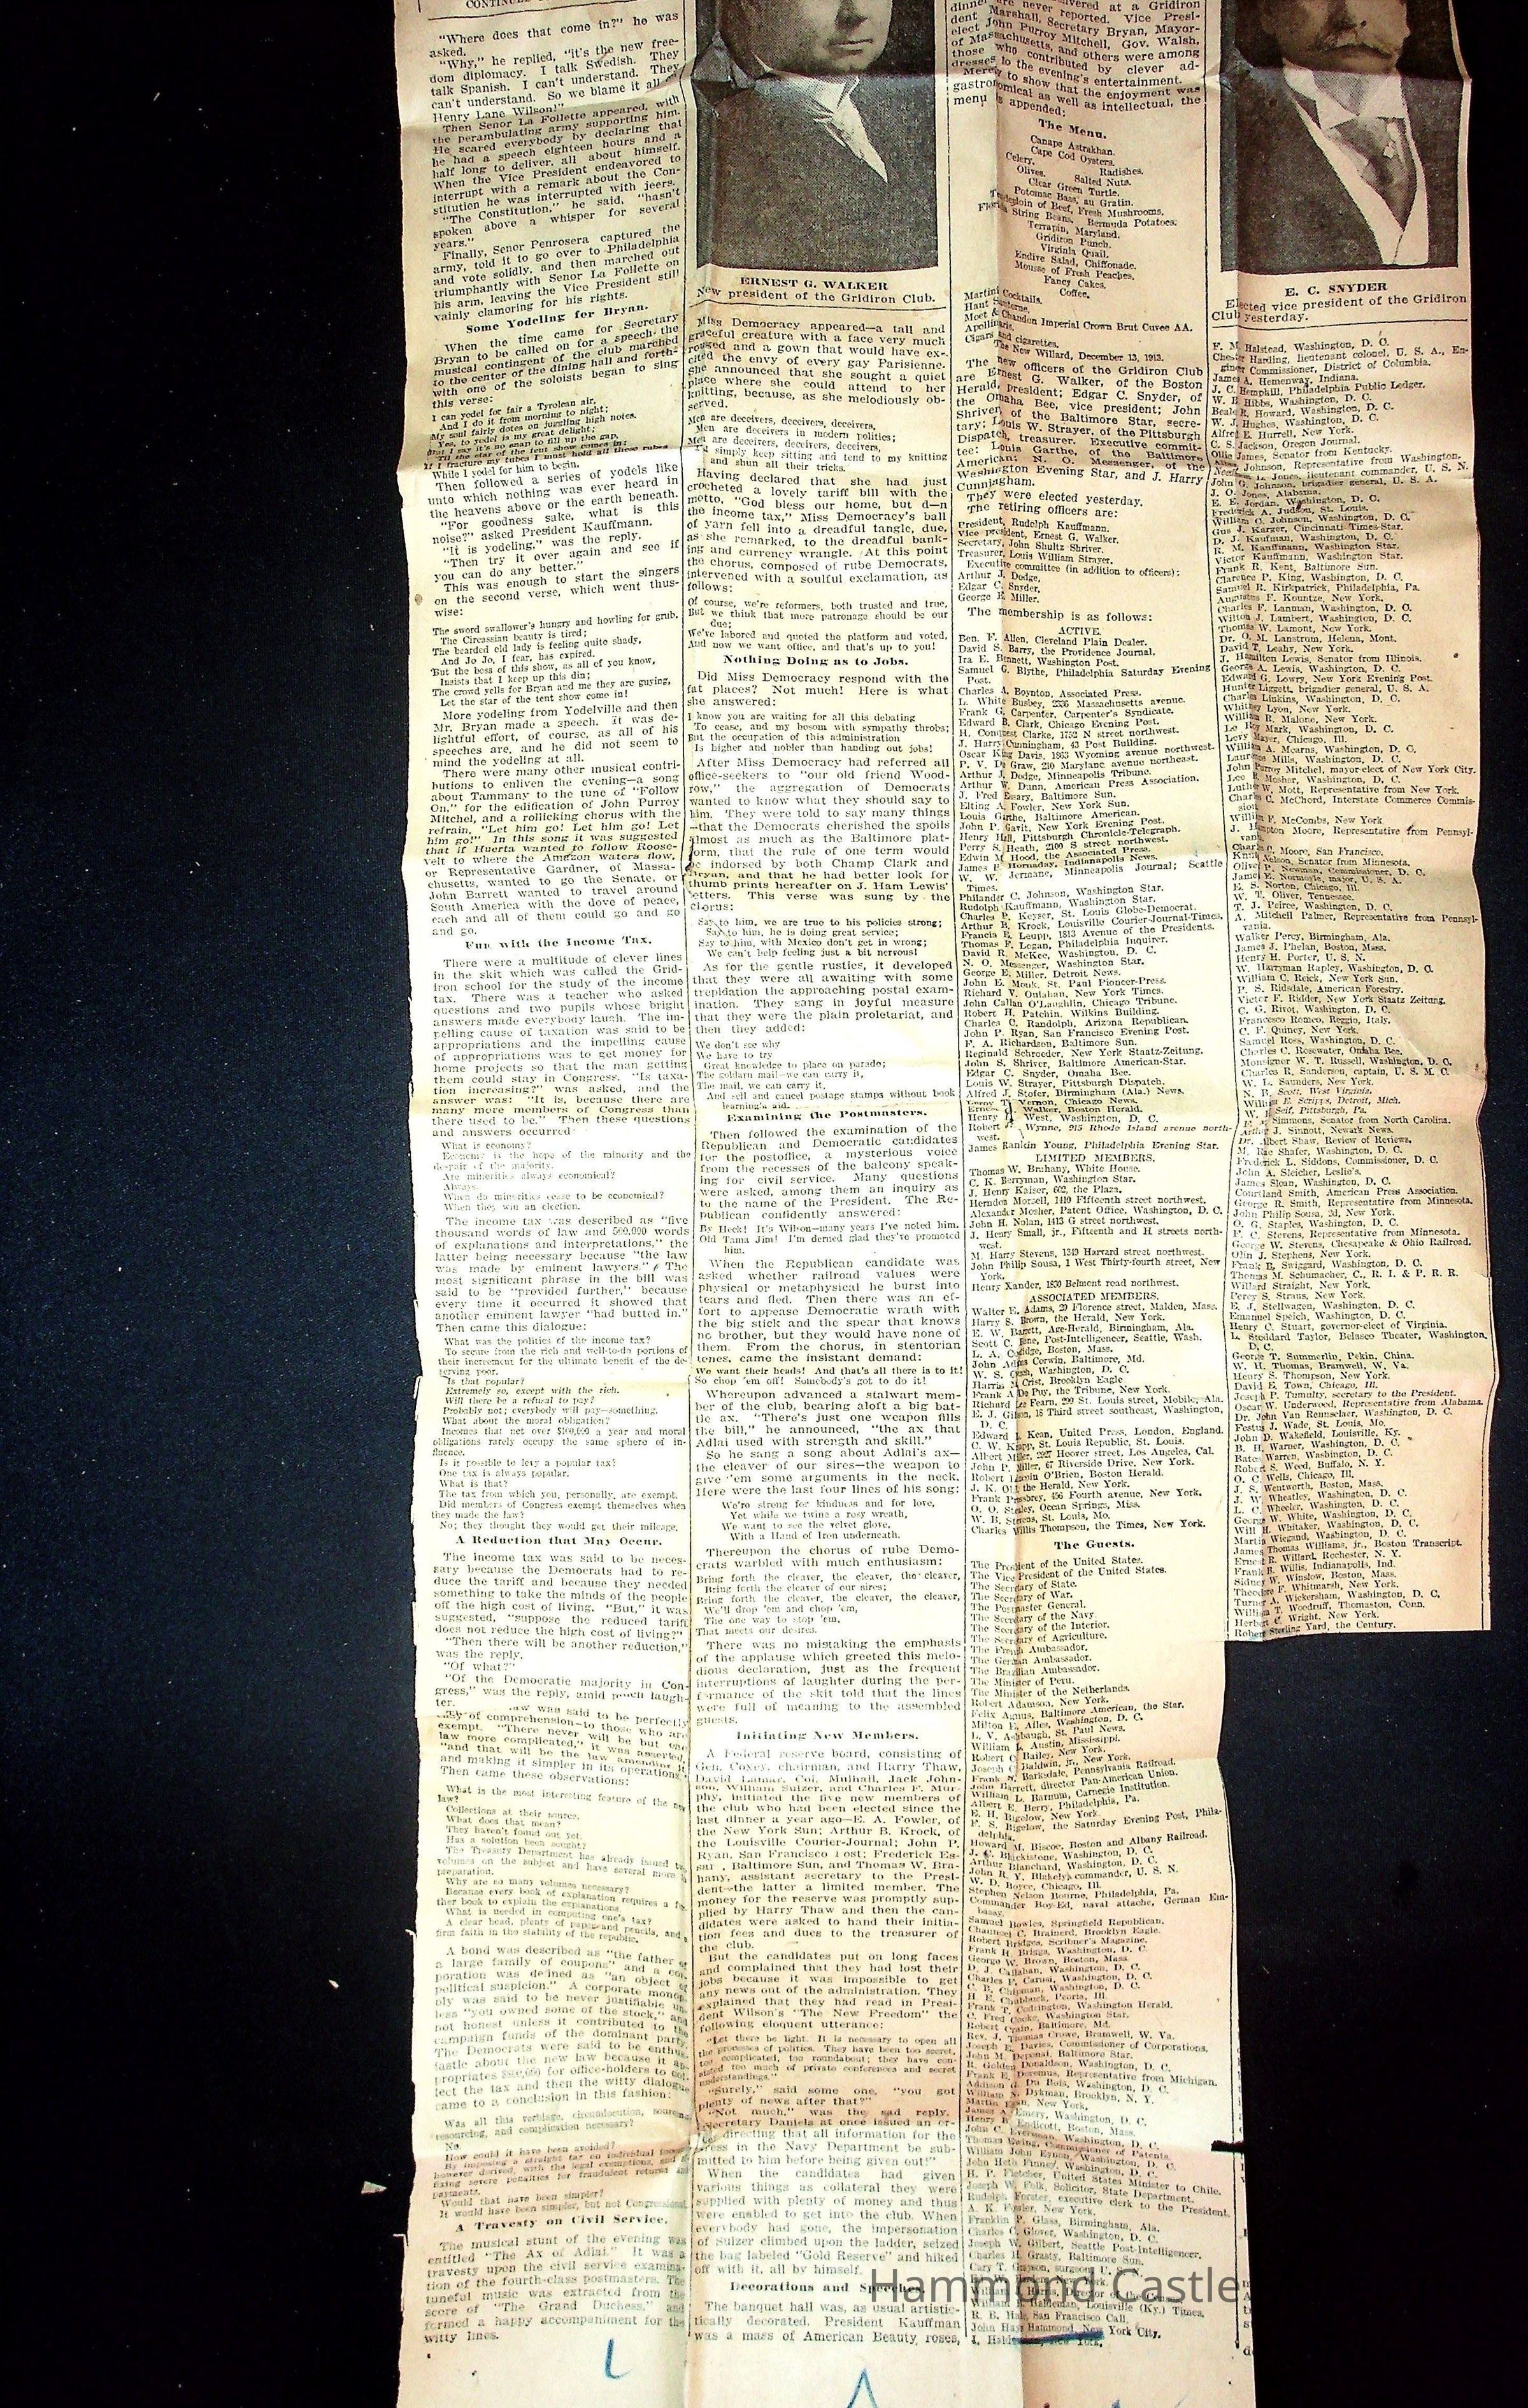 "Where does that come in?" he was
asked.
"Why," he replied, "it's the new free-
dom diplomacy. I talk Swedish. They
talk Spanish. I can't understand. They
can't understand. So we blame it all
Henry Lane Wilson!"
Then Senor La Follette appeared, with
the perambulating army supporting him.
He scared everybody by declaring that
he had a speech eighteen hours and a
half long to deliver, all about himself.
When the Vice President endeavored to
interrupt with a remark about the Con-
stitution he was interrupted with jeers.
"The Constitution," he said, "hasn't
spoken above a whisper for several
years."
Finally, Senor Penrosera captured the
army, told it to go over to Philadelphia
and vote solidly, and then marched out
triumphantly with Senor La Follette on
his arm, leaving the Vice President still
vainly clamoring for his rights.
Some Yodeling for Bryan.
When the time came for Secretary
Bryan to be called on for a speech the
musical contingent of the club marched
to the center of the dining hall and forth-
with one of the soloists began to sing
this verse:
I can yodel for fair a Tyrolean air,
And I do it from morning to night;
My soul fairly dotes on juggling high notes.
Yes, to yodel is my great delight;
But I say it's no snap to fill up the gap,
Till the star of the tent show comes in;
If I fracture my tubes I must hold all these rubes
While I yodel for him to begin.
Then followed a series of yodels like
unto which nothing was ever heard in
the heavens above or the earth beneath.
"For goodness sake, what is this
noise?" asked President Kauffmann.
"It is yodeling," was the reply.
"Then try it over again and see if
you can do any better."
This was enough to start the singers
on the second verse, which went thus-
wise:
The sword swallower's hungry and howling for grub,
The Circassian beauty is tired;
The bearded old lady is feeling quite shady,
And Jo Jo, I fear, has expired.
But the boss of this show, as all of you know,
Insists that I keep up this din;
The crowd yells for Bryan and me they are guying,
Let the star of the tent show come in!
More yodeling from Yodelville and then
Mr. Bryan made a speech. It was de-
lightful effort, of course, as all of his
speeches are, and he did not seem to
mind the yodeling at all.
There were many other musical contri-
butions to enliven the evening—a song
about Tammany to the tune of "Follow
On," for the edification of John Purroy
Mitchel, and a rollicking chorus with the
refrain, "Let him go! Let him go! Let
him go!" In this song it was suggested
that if Huerta wanted to follow Roose-
velt to where the Amazon waters flow,
or Representative Gardner, of Massa-
chusetts, wanted to go the Senate, or
John Barrett wanted to travel around
South America with the dove of peace,
each and all of them could go and go
and go.
Fun with the Income Tax.
There were a multitude of clever lines
in the skit which was called the Grid-
iron school for the study of the income
tax. There was a teacher who asked
questions and two pupils whose bright
answers made everybody laugh. The im-
pelling cause of taxation was said to be
appropriations and the impelling cause
of appropriations was to get money for
home projects so that the man getting
them could stay in Congress. "Is taxa-
tion increasing?" was asked, and the
answer was: "It is, because there are
many more members of Congress than
there used to be." Then these questions
and answers occurred
What is economy?
Economy is the hope of the minority and the
despair of the majority.
Are minorities always economical?
Always.
When do minorities cease to be economical?
When they win an election.
The income tax was described as "five
thousand words of law and 500,000 words
of explanations and interpretations," the
latter being necessary because "the law
was made by eminent lawyers." The
most significant phrase in the bill was
said to be "provided further," because
every time it occurred it showed that
another eminent lawyer "had butted in."
Then came this dialogue:
What was the politics of the income tax?
To secure from the rich and well-to-do portions of
their increment for the ultimate benefit of the de-
serving poor.
Is that popular?
Extremely so, except with the rich.
Will there be a refusal to pay?
Probably not; everybody will pay—something.
What about the moral obligation?
Incomes that net over $100,000 a year and moral
obligations rarely occupy the same sphere of in-
fluence.
Is it possible to levy a popular tax?
One tax is always popular.
What is that?
The tax from which you, personally, are exempt.
Did members of Congress exempt themselves when
they made the law?
No; they thought they would get their mileage.
A Reduction that May Occur.
The income tax was said to be neces-
sary because the Democrats had to re-
duce the tariff and because they needed
something to take the minds of the people
off the high cost of living. "But," it was
suggested, "suppose the reduced tariff
does not reduce the high cost of living?"
"Then there will be another reduction,"
was the reply.
"Of what?"
"Of the Democratic majority in Con-
gress," was the reply, amid much laugh-
ter.
law was said to be perfectly
easy of comprehension—to those who are
exempt. "There never will be but one
law more complicated," it was asserted,
"and that will be the law amending it
and making it simpler in its operations."
Then came these observations:
What is the most interesting feature of the new
law?
Collections at their source.
What does that mean?
They haven't found out yet.
Has a solution been sought?
The Treasury Department has already issued two
volumes on the subject and have several more in
preparation.
Why are so many volumes necessary?
Because every book of explanation requires a fur-
ther book to explain the explanations.
What is needed in computing one's tax?
A clear head, plenty of paper and pencils, and a
firm faith in the stability of the republic.
A bond was described as "the father of
a large family of coupons" and a cor-
poration was defined as "an object of
political suspicion." A corporate monop-
oly was said to be never justifiable un-
less "you owned some of the stock," and
not honest unless it contributed to the
campaign funds of the dominant party.
The Democrats were said to be enthus-
iastic about the new law because it ap-
propriates for office-holders to col-
lect the tax and then the witty dialogue
came to a conclusion in this fashion:
Was all this verbiage, circumlocution, sourcing,
resourcing, and complication necessary?
No.
How could it have been avoided?
By imposing a straight tax on individual incomes
however derived, with the legal exemptions, and
fixing severe penalties for fraudulent returns and
payments.
Would that have been simpler?
It would have been simpler, but not Congressional.
A Travesty on Civil Service.
The musical stunt of the evening was
entitled "The Ax of Adlai." It was a
travesty upon the civil service examina-
tion of the fourth-class postmasters. The
tuneful music was extracted from the
score of "The Grand Duchess," and
formed a happy accompaniment for the
witty lines.
ERNEST G. WALKER
New president of the Gridiron Club.
Miss Democracy appeared—a tall and
graceful creature with a face very much
rouged and a gown that would have ex-
cited the envy of every gay Parisienne.
She announced that she sought a quiet
place where she could attend to her
knitting, because, as she melodiously ob-
served.
Men are deceivers, deceivers, deceivers,
Men are deceivers in modern politics;
Men are deceivers, deceivers, deceivers,
I'd simply keep sitting and tend to my knitting
and shun all their tricks.
Having declared that she had just
crocheted a lovely tariff bill with the
motto, "God bless our home, but d—n
the income tax," Miss Democracy's ball
of yarn fell into a dreadful tangle, due,
as she remarked, to the dreadful bank-
ing and currency wrangle. At this point
the chorus, composed of rube Democrats,
intervened with a soulful exclamation, as
follows:
Of course, we're reformers, both trusted and true,
But we think that more patronage should be our
due;
We've labored and quoted the platform and voted,
And now we want office, and that's up to you!
Nothing Doing as to Jobs.
Did Miss Democracy respond with the
fat places? Not much! Here is what
she answered:
I know you are waiting for all this debating
To cease, and my bosom with sympathy throbs;
But the occupation of this administration
Is higher and nobler than handing out jobs!
After Miss Democracy had referred all
office-seekers to "our old friend Wood-
row," the aggregation of Democrats
wanted to know what they should say to
him. They were told to say many things
—that the Democrats cherished the spoils
almost as much as the Baltimore plat-
form, that the rule of one term would
be indorsed by both Champ Clark and
Bryan, and that he had better look for
thumb prints hereafter on J. Ham Lewis'
letters. This verse was sung by the
chorus:
Say to him, we are true to his policies strong;
Say to him, he is doing great service;
Say to him, with Mexico don't get in wrong;
We can't help feeling just a bit nervous!
As for the gentle rustics, it developed
that they were all awaiting with some
trepidation the approaching postal exam-
ination. They sang in joyful measure
that they were the plain proletariat, and
then they added:
We don't see why
We have to try
Great knowledge to place on parade;
The goldarn mail—we can carry it,
The mail, we can carry it,
And sell and cancel postage stamps without book
learning's aid.
Examining the Postmasters.
Then followed the examination of the
Republican and Democratic candidates
for the postoffice, a mysterious voice
from the recesses of the balcony speak-
ing for civil service. Many questions
were asked, among them an inquiry as
to the name of the President. The Re-
publican confidently answered:
By Heck! It's Wilson—many years I've noted him.
Old Tama Jim! I'm derned glad they've promoted
him.
When the Republican candidate was
asked whether railroad values were
physical or metaphysical he burst into
tears and fled. Then there was an ef-
fort to appease Democratic wrath with
the big stick and the spear that knows
no brother, but they would have none of
them. From the chorus, in stentorian
tones, came the insistant demand:
We want their heads! And that's all there is to it!
So chop 'em off! Somebody's got to do it!
Whereupon advanced a stalwart mem-
ber of the club, bearing aloft a big bat-
tle ax. "There's just one weapon fills
the bill," he announced, "the ax that
Adlai used with strength and skill."
So he sang a song about Adlai's ax—
the cleaver of our sires—the weapon to
give 'em some arguments in the neck.
Here were the last four lines of his song:
We're strong for kindness and for love,
Yet while we twine a rosy wreath,
We want to see the velvet glove,
With a Hand of Iron underneath.
Thereupon the chorus of rube Demo-
crats warbled with much enthusiasm:
Bring forth the cleaver, the cleaver, the cleaver,
Bring forth the cleaver of our sires;
Bring forth the cleaver, the cleaver, the cleaver,
We'll drop 'em and chop 'em,
The one way to stop 'em,
That meets our desires.
There was no mistaking the emphasis
of the applause which greeted this melo-
dious declaration, just as the frequent
interruptions of laughter during the per-
formance of the skit told that the lines
were full of meaning to the assembled
guests.
Initiating New Members.
A Federal reserve board, consisting of
Gen. Coxey, chairman, and Harry Thaw,
David Lamar, Col. Mulhall, Jack John-
son, William Sulzer, and Charles F. Mur-
phy, initiated the five new members of
the club who had been elected since the
last dinner a year ago—E. A. Fowler, of
the New York Sun; Arthur B. Krock, of
the Louisville Courier-Journal; John P.
Ryan, San Francisco Post; Frederick Es-
sary, Baltimore Sun, and Thomas W. Bra-
hany, assistant secretary to the Presi-
dent—the latter a limited member. The
money for the reserve was promptly sup-
plied by Harry Thaw and then the can-
didates were asked to hand their initia-
tion fees and dues to the treasurer of
the club.
But the candidates put on long faces
and complained that they had lost their
jobs because it was impossible to get
any news out of the administration. They
explained that they had read in Presi-
dent Wilson's "The New Freedom" the
following eloquent utterance:
"Let there be light. It is necessary to open all
the processes of politics. They have been too secret,
too complicated, too roundabout; they have con-
sisted too much of private conferences and secret
understandings."
"Surely," said some one, "you got
plenty of news after that?"
"Not much," was the sad reply.
"Secretary Daniels at once issued an or-
der directing that all information for the
press in the Navy Department be sub-
mitted to him before being given out!"
When the candidates had given
various things as collateral they were
supplied with plenty of money and thus
were enabled to get into the club. When
everybody had gone, the impersonation
of Sulzer climbed upon the ladder, seized
the bag labeled "Gold Reserve" and hiked
off with it, all by himself.
Decorations and Speeches.
The banquet hall was, as usual artistic-
tically decorated. President Kauffman
was a mass of American Beauty roses,
dinner are never reported. Vice Presi-
dent Marshall, Secretary Bryan, Mayor-
elect John Purroy Mitchell, Gov. Walsh,
of Massachusetts, and others were among
those who contributed by clever ad-
dresses to the evening's entertainment.
Merely to show that the enjoyment was
gastronomical as well as intellectual, the
menu is appended:
The Menu.
Canape Astrakhan.
Cape Cod Oysters.
Celery. Radishes.
Olives. Salted Nuts.
Clear Green Turtle.
Potomac Bass, au Gratin.
Tenderloin of Beef, Fresh Mushrooms.
Florida String Beans. Bermuda Potatoes.
Terrapin, Maryland.
Gridiron Punch.
Virginia Quail.
Endive Salad, Chiffonade.
Mousse of Fresh Peaches.
Fancy Cakes.
Coffee.
Martini Cocktails.
Haut Sauterne.
Moet & Chandon Imperial Crown Brut Cuvee AA.
Apollinaris.
Cigars and cigarettes.
The New Willard, December 13, 1913.
The new officers of the Gridiron Club
are Ernest G. Walker, of the Boston
Herald, president; Edgar C. Snyder, of
the Omaha Bee, vice president; John
Shriver, of the Baltimore Star, secre-
tary; Louis W. Strayer, of the Pittsburgh
Dispatch, treasurer. Executive commit-
tee: Louis Garthe, of the Baltimore
American; N. O. Messenger, of the
Washington Evening Star, and J. Harry
Cunningham.
They were elected yesterday.
The retiring officers are:
President, Rudolph Kauffmann.
Vice president, Ernest G. Walker.
Secretary, John Shultz Shriver.
Treasurer, Louis William Strayer.
Executive committee (in addition to officers):
Arthur J. Dodge,
Edgar C. Snyder,
George E. Miller.
The membership is as follows:
ACTIVE.
Ben. F. Allen, Cleveland Plain Dealer.
David S. Barry, the Providence Journal.
Ira E. Bennett, Washington Post.
Samuel G. Blythe, Philadelphia Saturday Evening
Post.
Charles A. Boynton, Associated Press.
L. White Busbey, 2336 Massachusetts avenue.
Frank G. Carpenter, Carpenter's Syndicate.
Edward B. Clark, Chicago Evening Post.
H. Conquest Clarke, 1752 N street northwest.
J. Harry Cunningham, 43 Post Building.
Oscar King Davis, 1863 Wyoming avenue northwest.
P. V. De Graw, 210 Maryland avenue northeast.
Arthur J. Dodge, Minneapolis Tribune.
Arthur W. Dunn, American Press Association.
J. Fred Essary, Baltimore Sun.
Elting A. Fowler, New York Sun.
Louis Garthe, Baltimore American.
John P. Gavit, New York Evening Post.
Henry Hall, Pittsburgh Chronicle-Telegraph.
Perry S. Heath, 2100 S street northwest.
Edwin M. Hood, the Associated Press.
James P. Hornaday, Indianapolis News.
W. W. Jermane, Minneapolis Journal; Seattle
Times.
Philander C. Johnson, Washington Star.
Rudolph Kauffmann, Washington Star.
Charles P. Keyser, St. Louis Globe-Democrat.
Arthur B. Krock, Louisville Courier-Journal-Times.
Francis E. Leupp, 1813 Avenue of the Presidents.
Thomas F. Logan, Philadelphia Inquirer.
David R. McKee, Washington, D. C.
N. O. Messenger, Washington Star.
George E. Miller, Detroit News.
John E. Monk, St. Paul Pioneer-Press.
Richard V. Oulahan, New York Times.
John Callan O'Laughlin, Chicago Tribune.
Robert H. Patchin, Wilkins Building.
Charles C. Randolph, Arizona Republican.
John P. Ryan, San Francisco Evening Post.
F. A. Richardson, Baltimore Sun.
Reginald Schroeder, New York Staatz-Zeitung.
John S. Shriver, Baltimore American-Star.
Edgar C. Snyder, Omaha Bee.
Louis W. Strayer, Pittsburgh Dispatch.
Alfred J. Stofer, Birmingham (Ala.) News.
Leroy T. Vernon, Chicago News.
Ernest G. Walker, Boston Herald.
Henry L. West, Washington, D. C.
Robert J. Wynne, 915 Rhode Island avenue north-
west.
James Rankin Young, Philadelphia Evening Star.
LIMITED MEMBERS.
Thomas W. Brahany, White House.
C. K. Berryman, Washington Star.
J. Henry Kaiser, 602, the Plaza.
Herndon Morsell, 1110 Fifteenth street northwest.
Alexander Mosher, Patent Office, Washington, D. C.
John H. Nolan, 1413 G street northwest.
J. Henry Small, jr., Fifteenth and H streets north-
west.
M. Harry Stevens, 1349 Harvard street northwest.
John Philip Sousa, 1 West Thirty-fourth street, New
York.
Henry Xander, 1830 Belmont road northwest.
ASSOCIATED MEMBERS.
Walter E. Adams, 29 Florence street, Malden, Mass.
Harry S. Brown, the Herald, New York.
E. W. Barrett, Age-Herald, Birmingham, Ala.
Scott C. Bone, Post-Intelligencer, Seattle, Wash.
L. A. Coolidge, Boston, Mass.
John Adams Corwin, Baltimore, Md.
W. S. Couch, Washington, D. C.
Harris M. Crist, Brooklyn Eagle
Frank A. De Puy, the Tribune, New York.
Richard Lee Fearn, 299 St. Louis street, Mobile, Ala.
E. J. Gibson, 18 Third street southeast, Washington,
D. C.
Edward L. Kean, United Press, London, England.
C. W. Knapp, St. Louis Republic, St. Louis.
Albert Miller, 2927 Hoover street, Los Angeles, Cal.
John P. Miller, 67 Riverside Drive, New York.
Robert Lincoln O'Brien, Boston Herald.
J. K. Ohl, the Herald, New York.
Frank Presbrey, 456 Fourth avenue, New York.
O. O. Stealey, Ocean Springs, Miss.
W. B. Stevens, St. Louis, Mo.
Charles Willis Thompson, the Times, New York.
The Guests.
The President of the United States.
The Vice President of the United States.
The Secretary of State.
The Secretary of War.
The Postmaster General.
The Secretary of the Navy.
The Secretary of the Interior.
The Secretary of Agriculture.
The French Ambassador.
The German Ambassador.
The Brazilian Ambassador.
The Minister of Peru.
The Minister of the Netherlands.
Robert Adamson, New York.
Felix Agnus, Baltimore American, the Star.
Milton E. Ailes, Washington, D. C.
L. V. Ashbaugh, St. Paul News.
William L. Austin, Mississippi.
Robert C. Bailey, New York.
Joseph C. Baldwin, jr., New York.
Frank N. Barksdale, Pennsylvania Railroad.
John Barrett, director Pan-American Union.
William L. Barnum, Carnegie Institution.
Albert E. Berry, Philadelphia, Pa.
E. H. Bigelow, New York.
F. S. Bigelow, the Saturday Evening Post, Phila-
delphia.
Howard M. Biscoe, Boston and Albany Railroad.
J. C. Blackistone, Washington, D. C.
Arthur Blanchard, Washington, D. C.
John R. Y. Blakely, commander, U. S. N.
W. D. Boyce, Chicago, Ill.
Stephen Nelson Bourne, Philadelphia, Pa.
Commander Boy-Ed, naval attache, German Em-
bassy.
Samuel Bowles, Springfield Republican.
Chauncey C. Brainerd, Brooklyn Eagle.
Robert Bridges, Scribner's Magazine.
Frank H. Briggs, Washington, D. C.
George W. Brown, Boston, Mass.
D. J. Callahan, Washington, D. C.
Charles F. Carusi, Washington, D. C.
C. B. Chipman, Washington, D. C.
H. E. Chubbuck, Peoria, Ill.
Frank T. Washington Herald.
C. Fred Cooke, Washington Star.
Robert Crain, Baltimore, Md.
Rev. J. Thomas Crowe, Bramwell, W. Va.
Joseph E. Davies, Commissioner of Corporations.
John M. Baltimore Star.
R. Golden Donaldson, Washington, D. C.
Frank E. Doremus, Representative from Michigan.
Addison G. Du Bois, Washington, D. C.
William N. Dykman, Brooklyn, N. Y.
Martin New York.
James A. Emery, Washington, D. C.
Henry B. Endicott, Boston, Mass.
John C. Washington, D. C.
Thomas Ewing, Commissioner of Patents.
William John Washington, D. C.
John Heth Finney, Washington, D. C.
H. P. Fletcher, United States Minister to Chile.
Joseph W. Folk, Solicitor, State Department.
Rudolph Forster, executive clerk to the President.
A. K. New York.
Franklin P. Glass, Birmingham, Ala.
Charles C. Glover, Washington, D. C.
Joseph W. Gilbert, Seattle Post-Intelligencer.
Charles H. Grasty, Baltimore Sun.
Cary T. Grayson,
William B. Haldeman, Louisville (Ky.) Times.
R. B. Hale, San Francisco Call.
John Hays Hammond, New York City.
New York.
E. C. SNYDER
Elected vice president of the Gridiron
Club yesterday.
F. M. Halstead, Washington, D. C.
Chester Harding, lieutenant colonel, U. S. A., En-
gineer Commissioner, District of Columbia.
James A. Hemenway, Indiana.
J. C. Hemphill, Philadelphia Public Ledger.
W. B. Hibbs, Washington, D. C.
Beale R. Howard, Washington, D. C.
W. J. Hughes, Washington, D. C.
Alfred E. Hurrell, New York.
C. S. Jackson, Oregon Journal.
Ollie James, Senator from Kentucky.
Johnson, Representative from Washington.
L. Jones, lieutenant commander, U. S. N.
John G. Johnson, brigadier general, U. S. A.
J. O. Jones, Alabama.
E. E. Jordan, Washington, D. C.
Frederick A. Judson, St. Louis.
William C. Johnson, Washington, D. C.
Gus J. Karger, Cincinnati Times-Star.
D. J. Kaufman, Washington, D. C.
R. M. Kauffmann, Washington Star.
Victor Kauffmann, Washington Star.
Frank R. Kent, Baltimore Sun.
Clarence P. King, Washington, D. C.
Samuel R. Kirkpatrick, Philadelphia, Pa.
Augustus F. Kountze, New York.
Charles F. Lanman, Washington, D. C.
Wilton J. Lambert, Washington, D. C.
Thomas W. Lamont, New York.
Dr. O. M. Lanstrum, Helena, Mont.
David T. Leahy, New York.
J. Hamilton Lewis, Senator from Illinois.
George A. Lewis, Washington, D. C.
Edward G. Lowry, New York Evening Post.
Hunter Liggett, brigadier general, U. S. A.
Charles Linkins, Washington, D. C.
Whitney Lyon, New York.
William R. Malone, New York.
Le Roy Mark, Washington, D. C.
Levy Mayer, Chicago, Ill.
William A. Mearns, Washington, D. C.
Laurence Mills, Washington, D. C.
John Purroy Mitchel, mayor-elect of New York City.
Leo R. Mosher, Washington, D. C.
Luther W. Mott, Representative from New York.
Charles C. McChord, Interstate Commerce Commis-
sion.
William F. McCombs, New York.
J. Hampton Moore, Representative from Pennsyl-
vania.
Charles C. Moore, San Francisco.
Knute Nelson, Senator from Minnesota.
Oliver P. Newman, Commissioner, D. C.
James E. Normoyle, major, U. S. A.
E. S. Norton, Chicago, Ill.
W. T. Oliver, Tennessee.
T. J. Peirce, Washington, D. C.
A. Mitchell Palmer, Representative from Pennsyl-
vania.
Walker Percy, Birmingham, Ala.
James J. Phelan, Boston, Mass.
Henry H. Porter, U. S. N.
W. Harryman Rapley, Washington, D. C.
William C. Reick, New York Sun.
P. S. Ridsdale, American Forestry.
Victor F. Ridder, New York Staatz Zeitung.
C. G. Rivot, Washington, D. C.
Francesco Romeo, Reggio, Italy.
C. F. Quincy, New York.
Samuel Ross, Washington, D. C.
Charles C. Rosewater, Omaha Bee.
Monsignor W. T. Russell, Washington, D. C.
Charles R. Sanderson, captain, U. S. M. C.
W. L. Saunders, New York.
N. B. Scott, West Virginia.
William E. Scripps, Detroit, Mich.
W. J. Seif, Pittsburgh, Pa.
F. M. Simmons, Senator from North Carolina.
Arthur J. Sinnott, Newark News.
Dr. Albert Shaw, Review of Reviews.
M. Rae Shafer, Washington, D. C.
Frederick L. Siddons, Commissioner, D. C.
John A. Sleicher, Leslie's.
James Sloan, Washington, D. C.
Courtland Smith, American Press Association.
George R. Smith, Representative from Minnesota.
John Philip Sousa, 2d, New York.
O. G. Staples, Washington, D. C.
F. C. Stevens, Representative from Minnesota.
George W. Stevens, Chesapeake & Ohio Railroad.
Olin J. Stephens, New York.
Frank B. Swiggard, Washington, D. C.
Thomas M. Schumacher, C., R. I. & P. R. R.
Willard Straight, New York.
Percy S. Straus, New York.
E. J. Stellwagen, Washington, D. C.
Emanuel Speich, Washington, D. C.
Henry C. Stuart, governor-elect of Virginia.
L. Stoddard Taylor, Belasco Theater, Washington,
D. C.
George T. Summerlin, Pekin, China.
W. H. Thomas, Bramwell, W. Va.
Henry S. Thompson, New York.
David E. Town, Chicago, Ill.
Joseph P. Tumulty, secretary to the President.
Oscar W. Underwood, Representative from Alabama.
Dr. John Van Rensselaer, Washington, D. C.
Festus J. Wade, St. Louis, Mo.
John D. Wakefield, Louisville, Ky.
B. H. Warner, Washington, D. C.
Bates Warren, Washington, D. C.
Robert S. Weed, Buffalo, N. Y.
O. C. Wells, Chicago, Ill.
J. S. Wentworth, Boston, Mass.
J. W. Wheatley, Washington, D. C.
L. C. Wheeler, Washington, D. C.
George W. White, Washington, D. C.
Will H. Whitaker, Washington, D. C.
Martin Wiegand, Washington, D. C.
James Thomas Williams, jr., Boston Transcript.
Ernest R. Willard, Rochester, N. Y.
Frank B. Willis, Indianapolis, Ind.
Sidney W. Winslow, Boston, Mass.
Theodore F. Whitmarsh, New York.
Turner A. Wickersham, Washington, D. C.
William T. Woodruff, Thomaston, Conn.
Herbert C. Wright, New York.
Robert Sterling Yard, the Century.
Hammond Castle